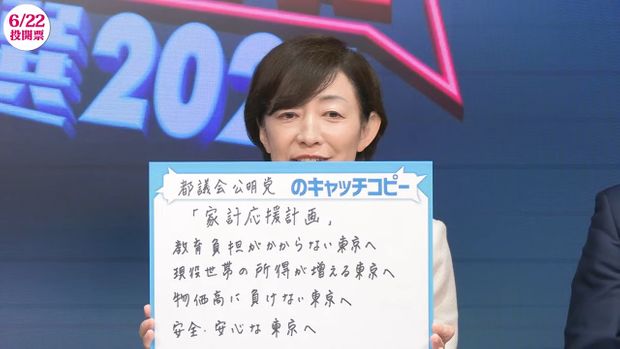 6/22
投開票
選202
都議会公明党 のキャッチコピー
「家計応援計画」
教育負担がかからない東京へ
現役世帯の所得が増える東京へ
物価高に負けない東京へ
安全・安心な東京へ